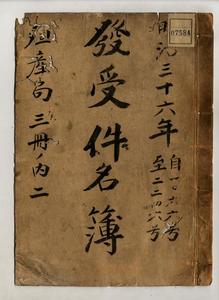 明治三十六年
自一〇六六号
至二三四六号
發受件名簿
殖産局 三冊ノ内二
07584